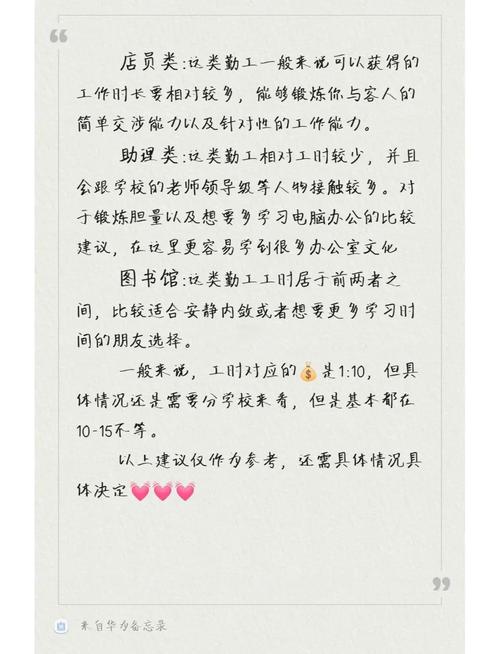 店员类:这类勤工一般来说可以获得的
工作时长要相对较多，能够锻炼你与客人的
简单交涉能力以及针对性的工作能力。
助理类:这类勤工相对工时较少，并且
会跟学校的老师领导级等人物接触较多。对
于锻炼胆量以及想要多学习电脑办公的比较
建议，在这里更容易学到很多办公室文化
图书馆:这类勤工工时居于前两者之
间，比较适合安静内敛或者想要更多学习时
间的朋友选择。
一般来说，工时对应的💰是1:10，但具
体情况还是需要分学校来看，但是基本都在
10-15不等。
以上建议仅作为参考，还需具体情况具
体决定💓💓💓
来自华为备忘录